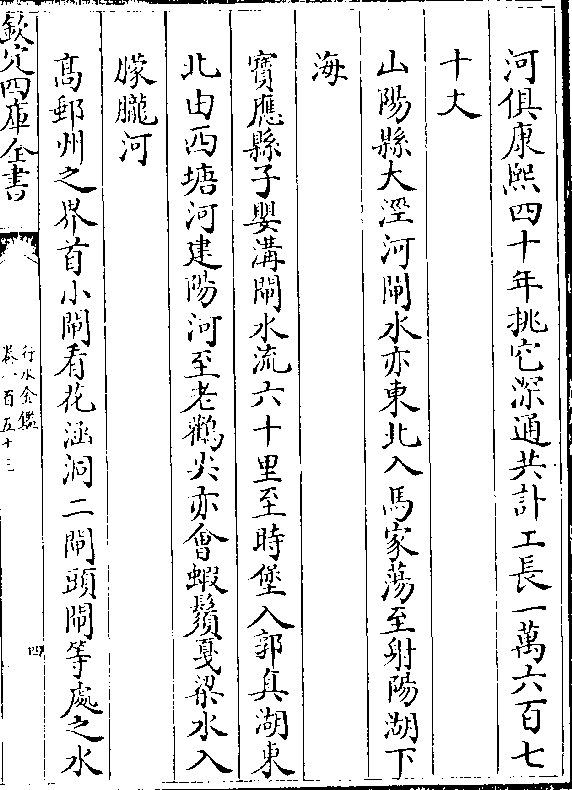 河俱康熙四十年挑它深通共計工長一萬六百七
十丈
山陽縣大涇河閘水亦東北入馬家蕩至射陽湖下
海
寶應縣子嬰溝閘水流六十里至時堡入郭真湖東
北由西塘河建陽河至老鸛尖亦會蝦鬚戛梁水入
朦朧河
高郵州之界首小閘看花涵洞二閘頭閘等處之水
欽定四庫全書
行水金鑑
卷一百五十三
四